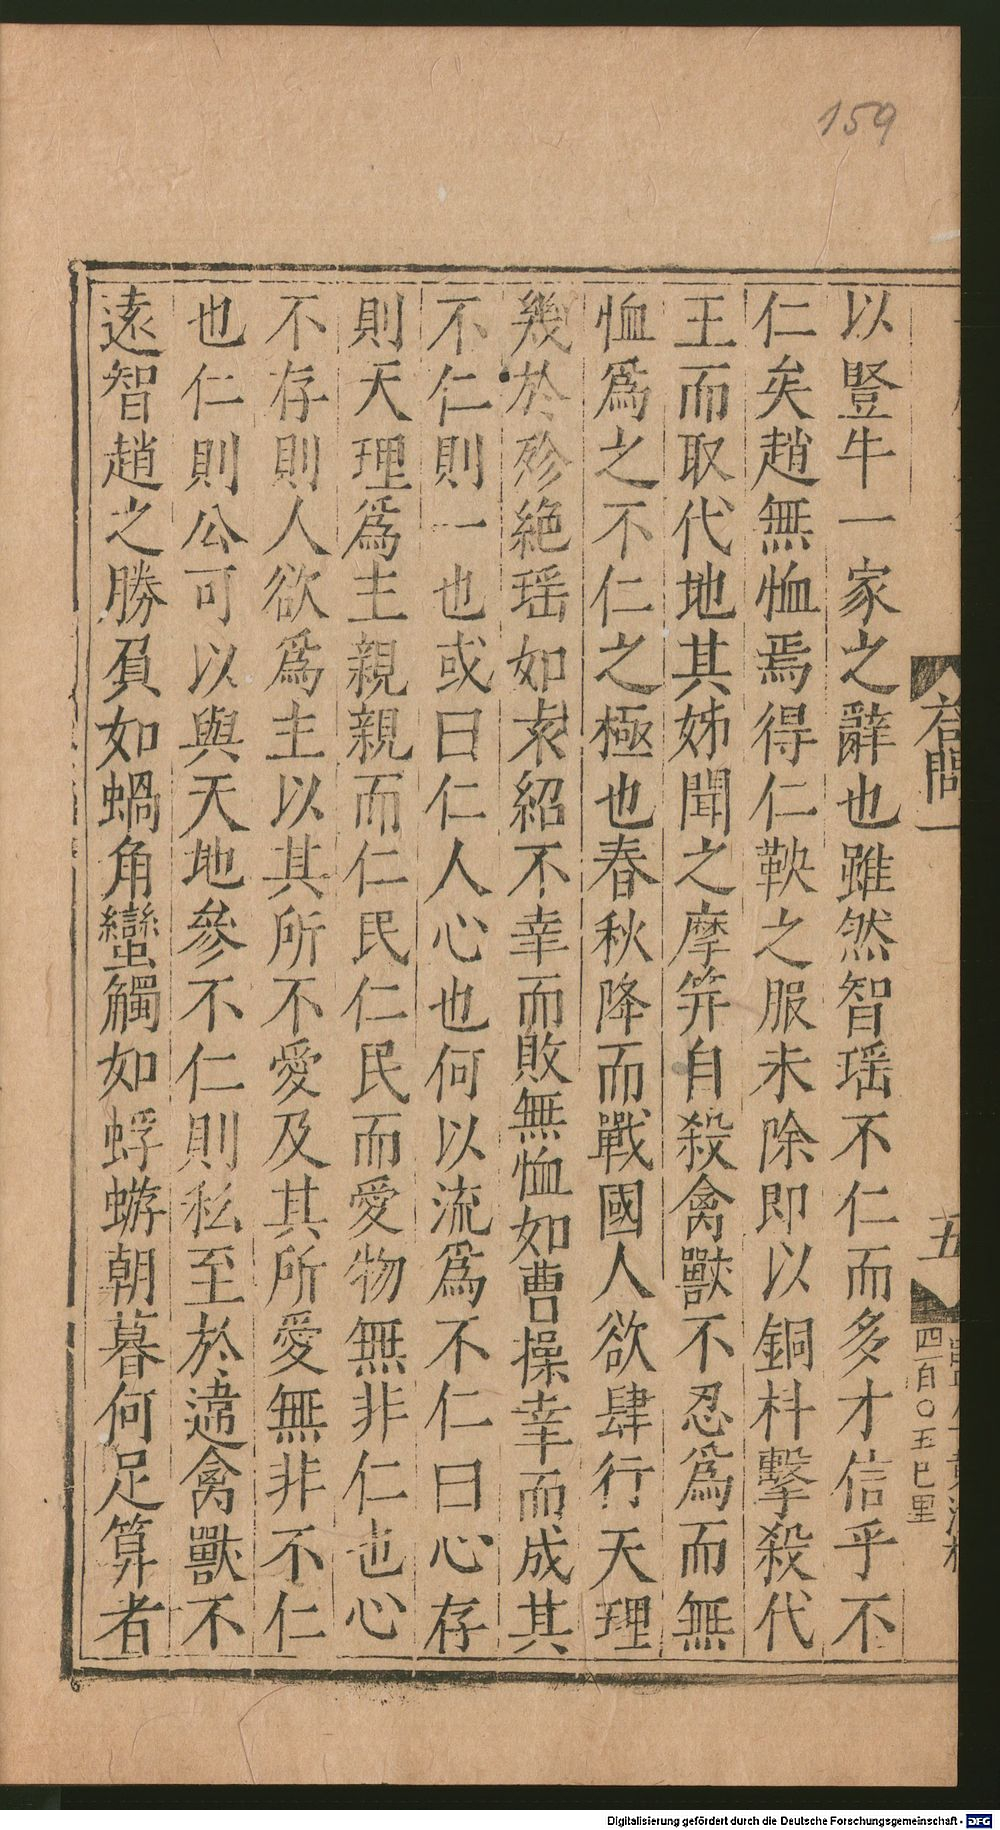 159
答問一
五
四百〇五巳里
以豎牛一家之辭也雖然智瑶不仁而多才信乎不
仁矣趙無恤焉得仁鞅之服未除即以銅枓擊殺代
王而取代地其姊聞之摩笄自殺禽獸不忍爲而無
恤爲之不仁之極也春秋降而戰國人欲肆行天理
幾於殄絶瑶如袁紹不幸而敗無恤如曹操幸而成其
不仁則一也或曰仁人心也何以流爲不仁曰心存
則天理爲主親親而仁民仁民而愛物無非仁也心
不存則人欲爲主以其所不愛及其所愛無非不仁
也仁則公可以與天地參不仁則私至於違禽獸不
遠智趙之勝負如蝸角蠻觸如蜉蝣朝暮何足算者
Digitalisierung gefördert durch die Deutsche Forschungsgemeinschaft - DFG